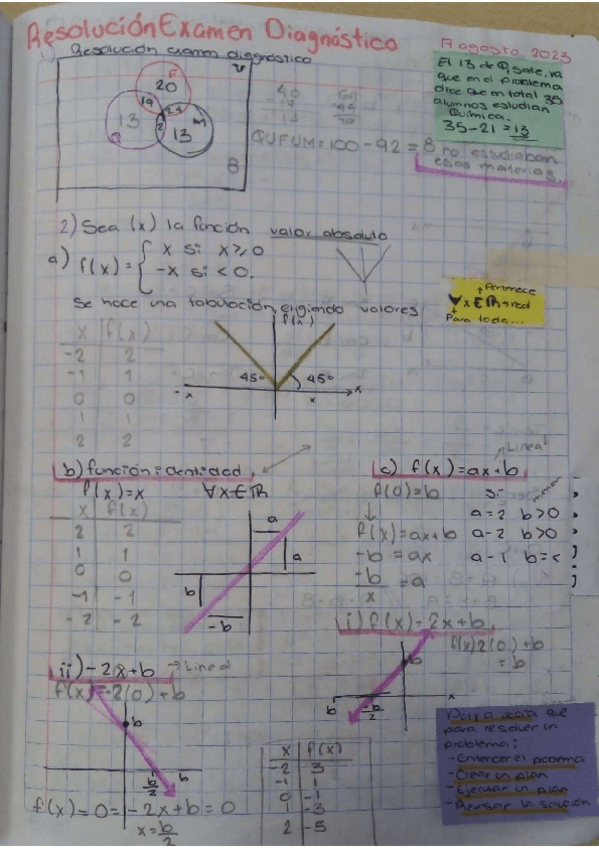 Resolución Examen Diagnóstico
7 agosto 2023
1) Resolución examen diagnóstico
El 13 de Q, sale, ya
que en el problema
dice que en total 35
alumnos estudian
Química.
35-21=13
U
F
20
19
24
13
2
13
M
Q
8
40
19
13
QUFUM=100-92=8 no estudiaban
esas materias.
2) Sea (x) la función valor absoluto
a) f(x)= { x si x≥0
-x si <0.
Se hace una tabulación, eligiendo valores
Pertenece
∀x∈ℝ→red
Para todo...
x f(x)
-2 2
-1 1
0 0
1 1
2 2
f(x)
45° 45°
-x x x
b) función identidad.
f(x)=x ∀x∈ℝ
x f(x)
2 2
1 1
0 0
-1 -1
-2 -2
a
a
b
-b
Lineal
c) f(x)=ax+b
f(0)=b si
a=2 b>0
f(x)=ax+b a-2 b>0
-b=ax a-1 b=<
-b/x=a
i) f(x)-2x+b
f(x)2(0)+b
=b
b
b -b/2 x
ii) -2x+b → Lineal
f(x)=-2(0)+b
b
b/2 b
f(x)=0=-2x+b=0
x=b/2
x f(x)
-2 3
-1 1
0 -1
1 -3
2 -5
Para resolver un
problema:
-Entender el problema
-Crear un plan
-Ejecutar un plan
-Revisar la solución